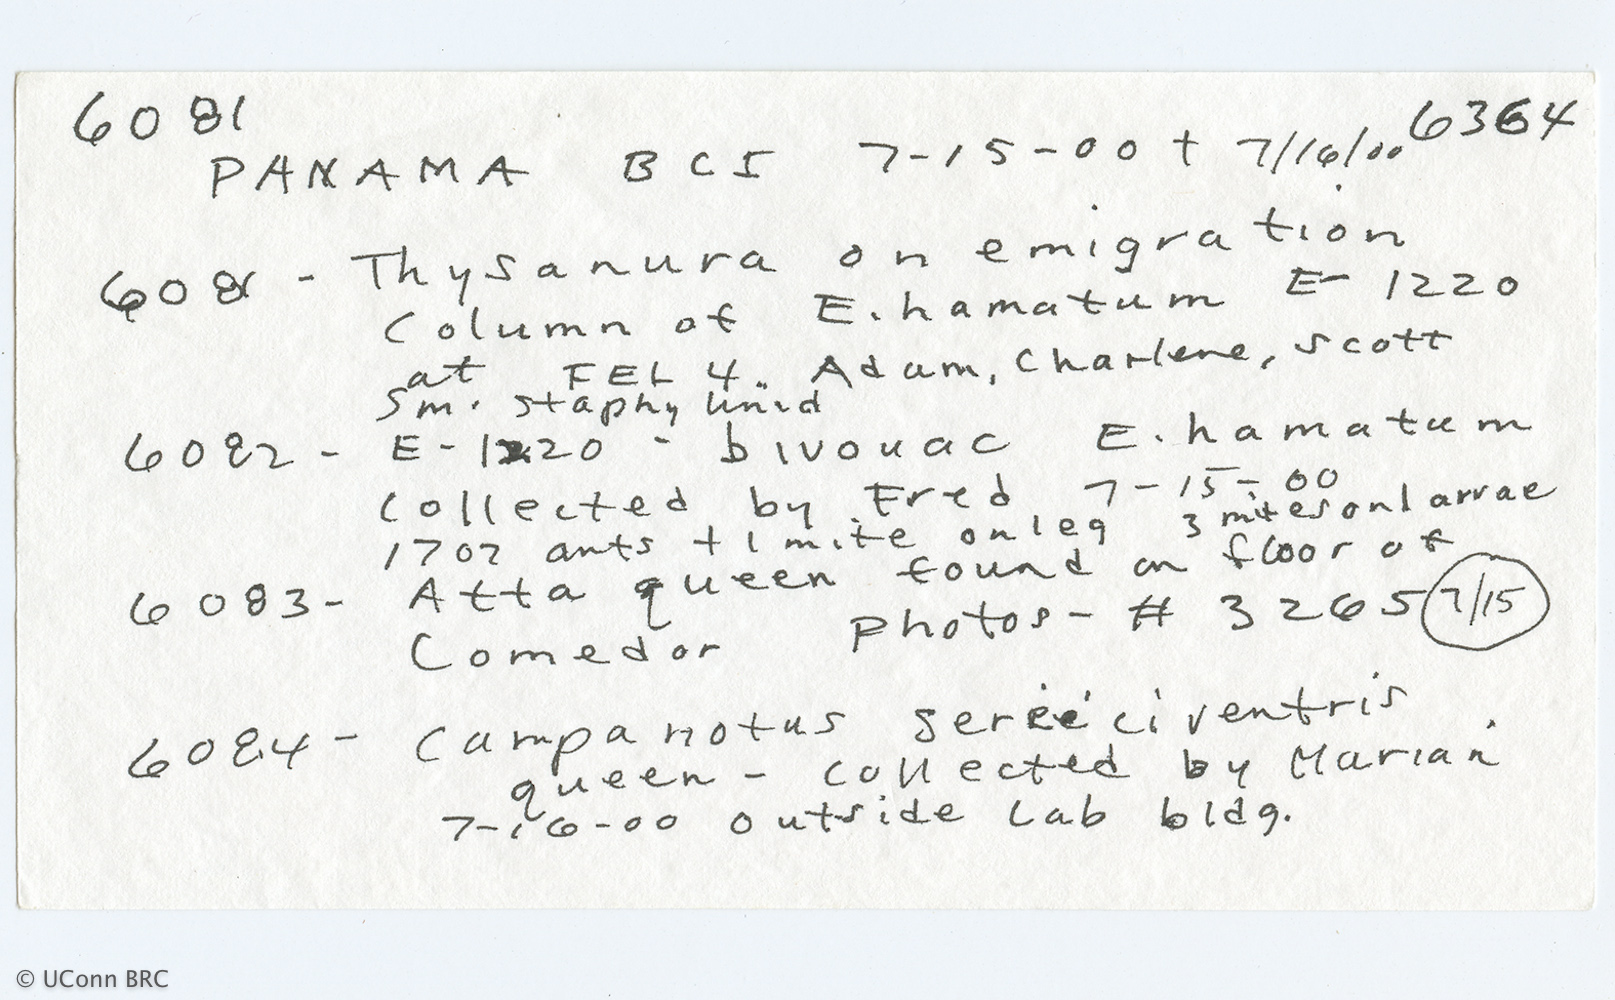 6081
6364
PANAMA BCI 7-15-00 + 7/16/00
6081 - Thysanura on emigration
column of E. hamatum E-1220
at FEL 4. Adam, Charlene, Scott
sm. staphylinid
6082 - E-1220 - bivouac E. hamatum
collected by Fred 7-15-00
1702 ants + 1 mite on leg 3 mites on larvae
6083 - Atta queen found on floor of
Comedor photos - # 3265 7/15
6084 - Campanotus sericiventris
queen - collected by Marian
7-16-00 outside Lab bldg.
© UConn BRC